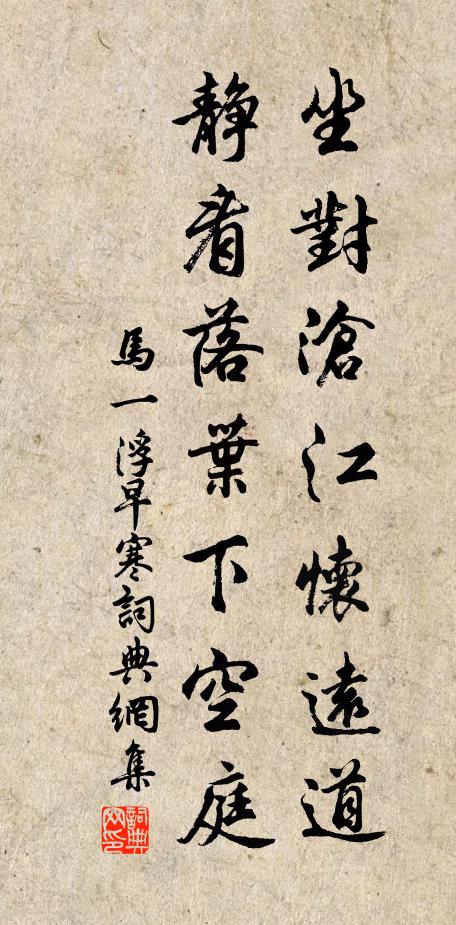 坐對滄江懷遠道
静看落葉下空庭
馬一浮早寒詞典網集
詞典網印